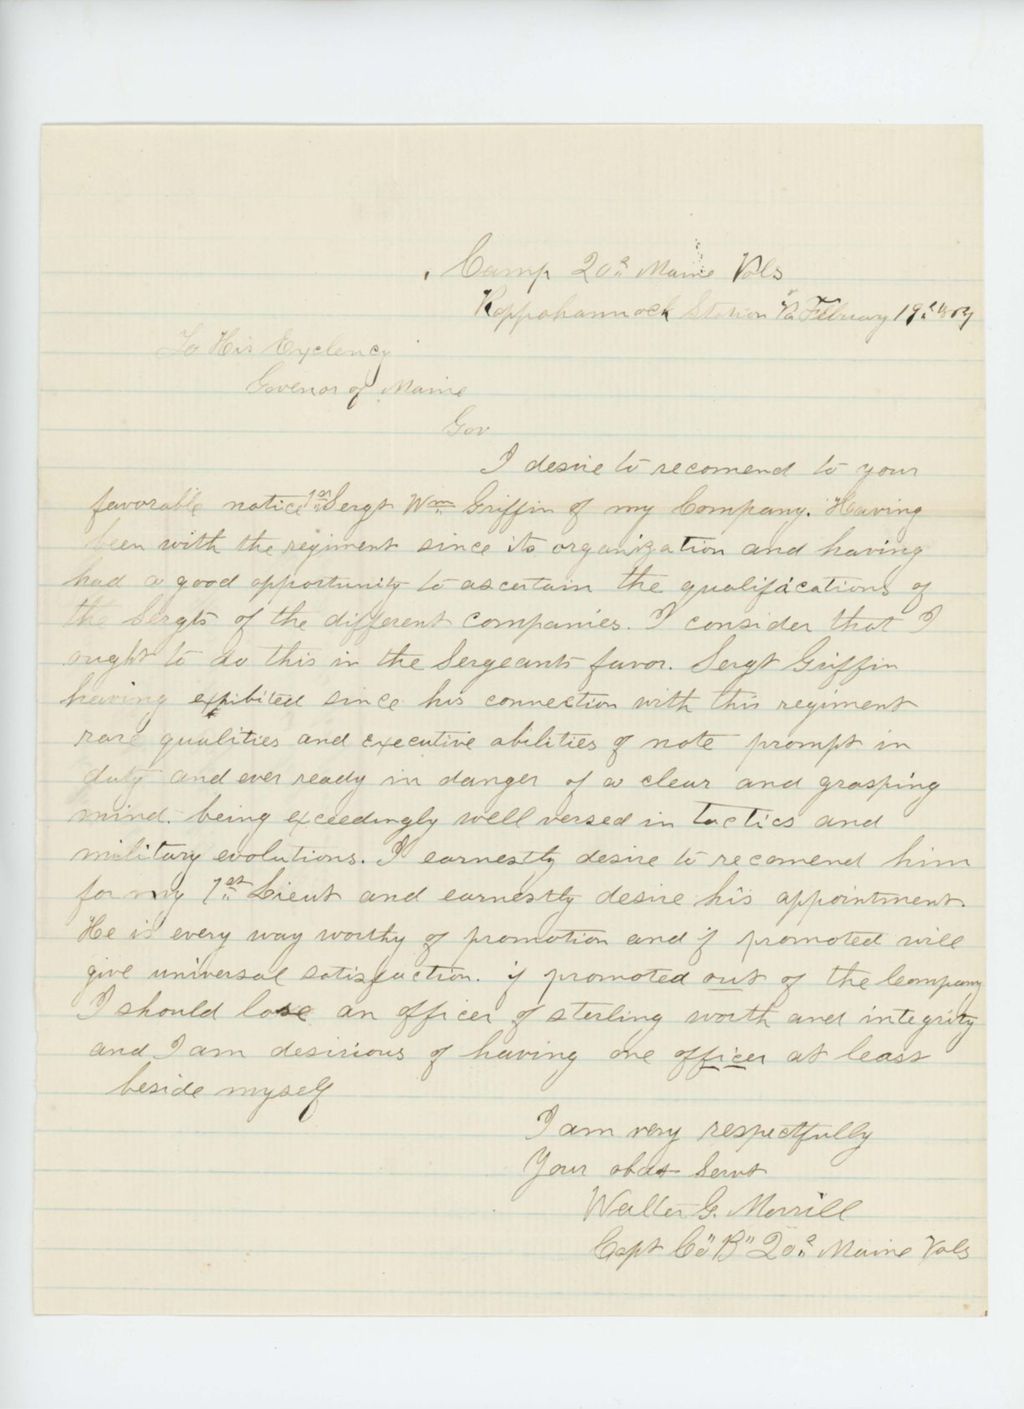 Camp 20th Maine Vols
Rappahannock Station Va Febuary 19th 1864
To His Exclency
Govenor of Maine
Gov
I desire to recomend to your
favorable notice 1st Sergt Wm Griffin of my Company. Having
been with the regiment since its organization and having
had a good opportunity to ascertain the qualifications of
the Sergts of the different companies. I consider that I
ought to do this in the Sergeants favor. Sergt Griffin
having exhibited since his connection with this regiment
rare qualities and executive abilities of note prompt in
duty and ever ready in danger of a clear and grasping
mind. being exceedingly well versed in tactics and
military evolutions. I earnestly desire to recomend him
for my 1st Lieut and earnestly desire his appointment.
He is every way worthy of promotion and if promoted will
give universal satisfaction. if promoted out of the Company
I should lose an officer of sterling worth and integrity
and I am desirious of having one officer at least
beside myself
I am very respectfully
Your obdt Servt
Walter G. Morrill
Capt Co "B" 20th Maine Vols